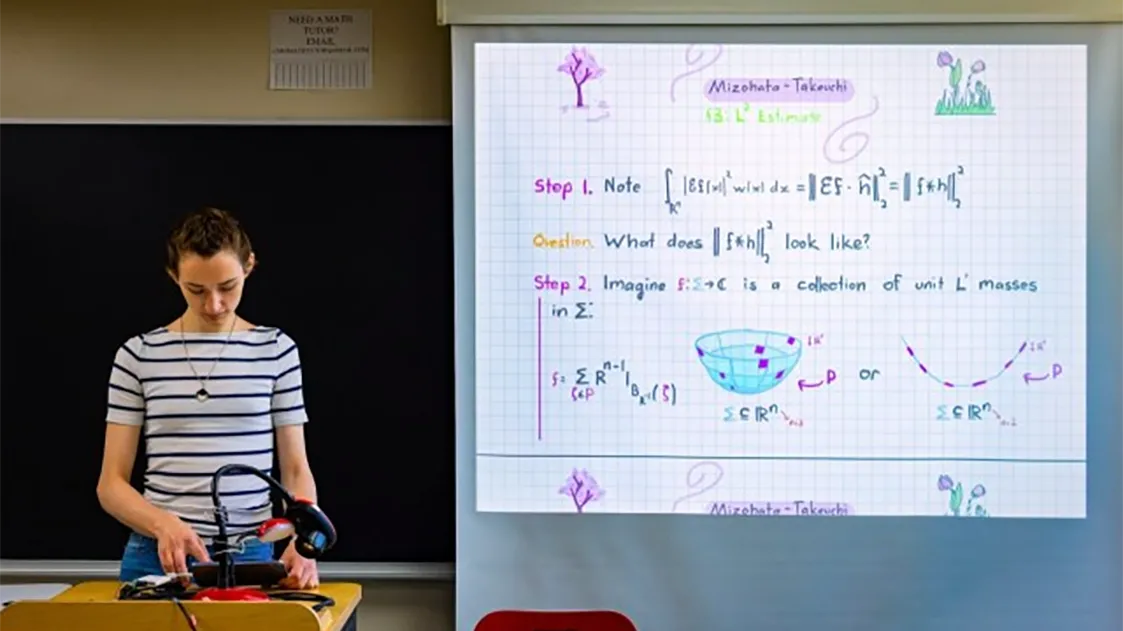 NEED A MATH
TUTOR?
EMAIL
Mizohata - Takeuchi
§3: L² Estimate
Step 1. Note ∫_{ℝⁿ} |Ef(x)|² w(x) dx = ‖Ef · ĥ‖₂² = ‖f*h‖₂²
Question. What does ‖f*h‖₂² look like?
Step 2. Imagine f: Σ→ℂ is a collection of unit L¹ masses
in Σ:
f = Σ_{ζ∈P} R^{n-1} 1_{B_{R⁻¹}(ζ)}
P or P
Σ ⊆ ℝⁿ
Σ ⊆ ℝⁿ
Mizohata - Takeuchi